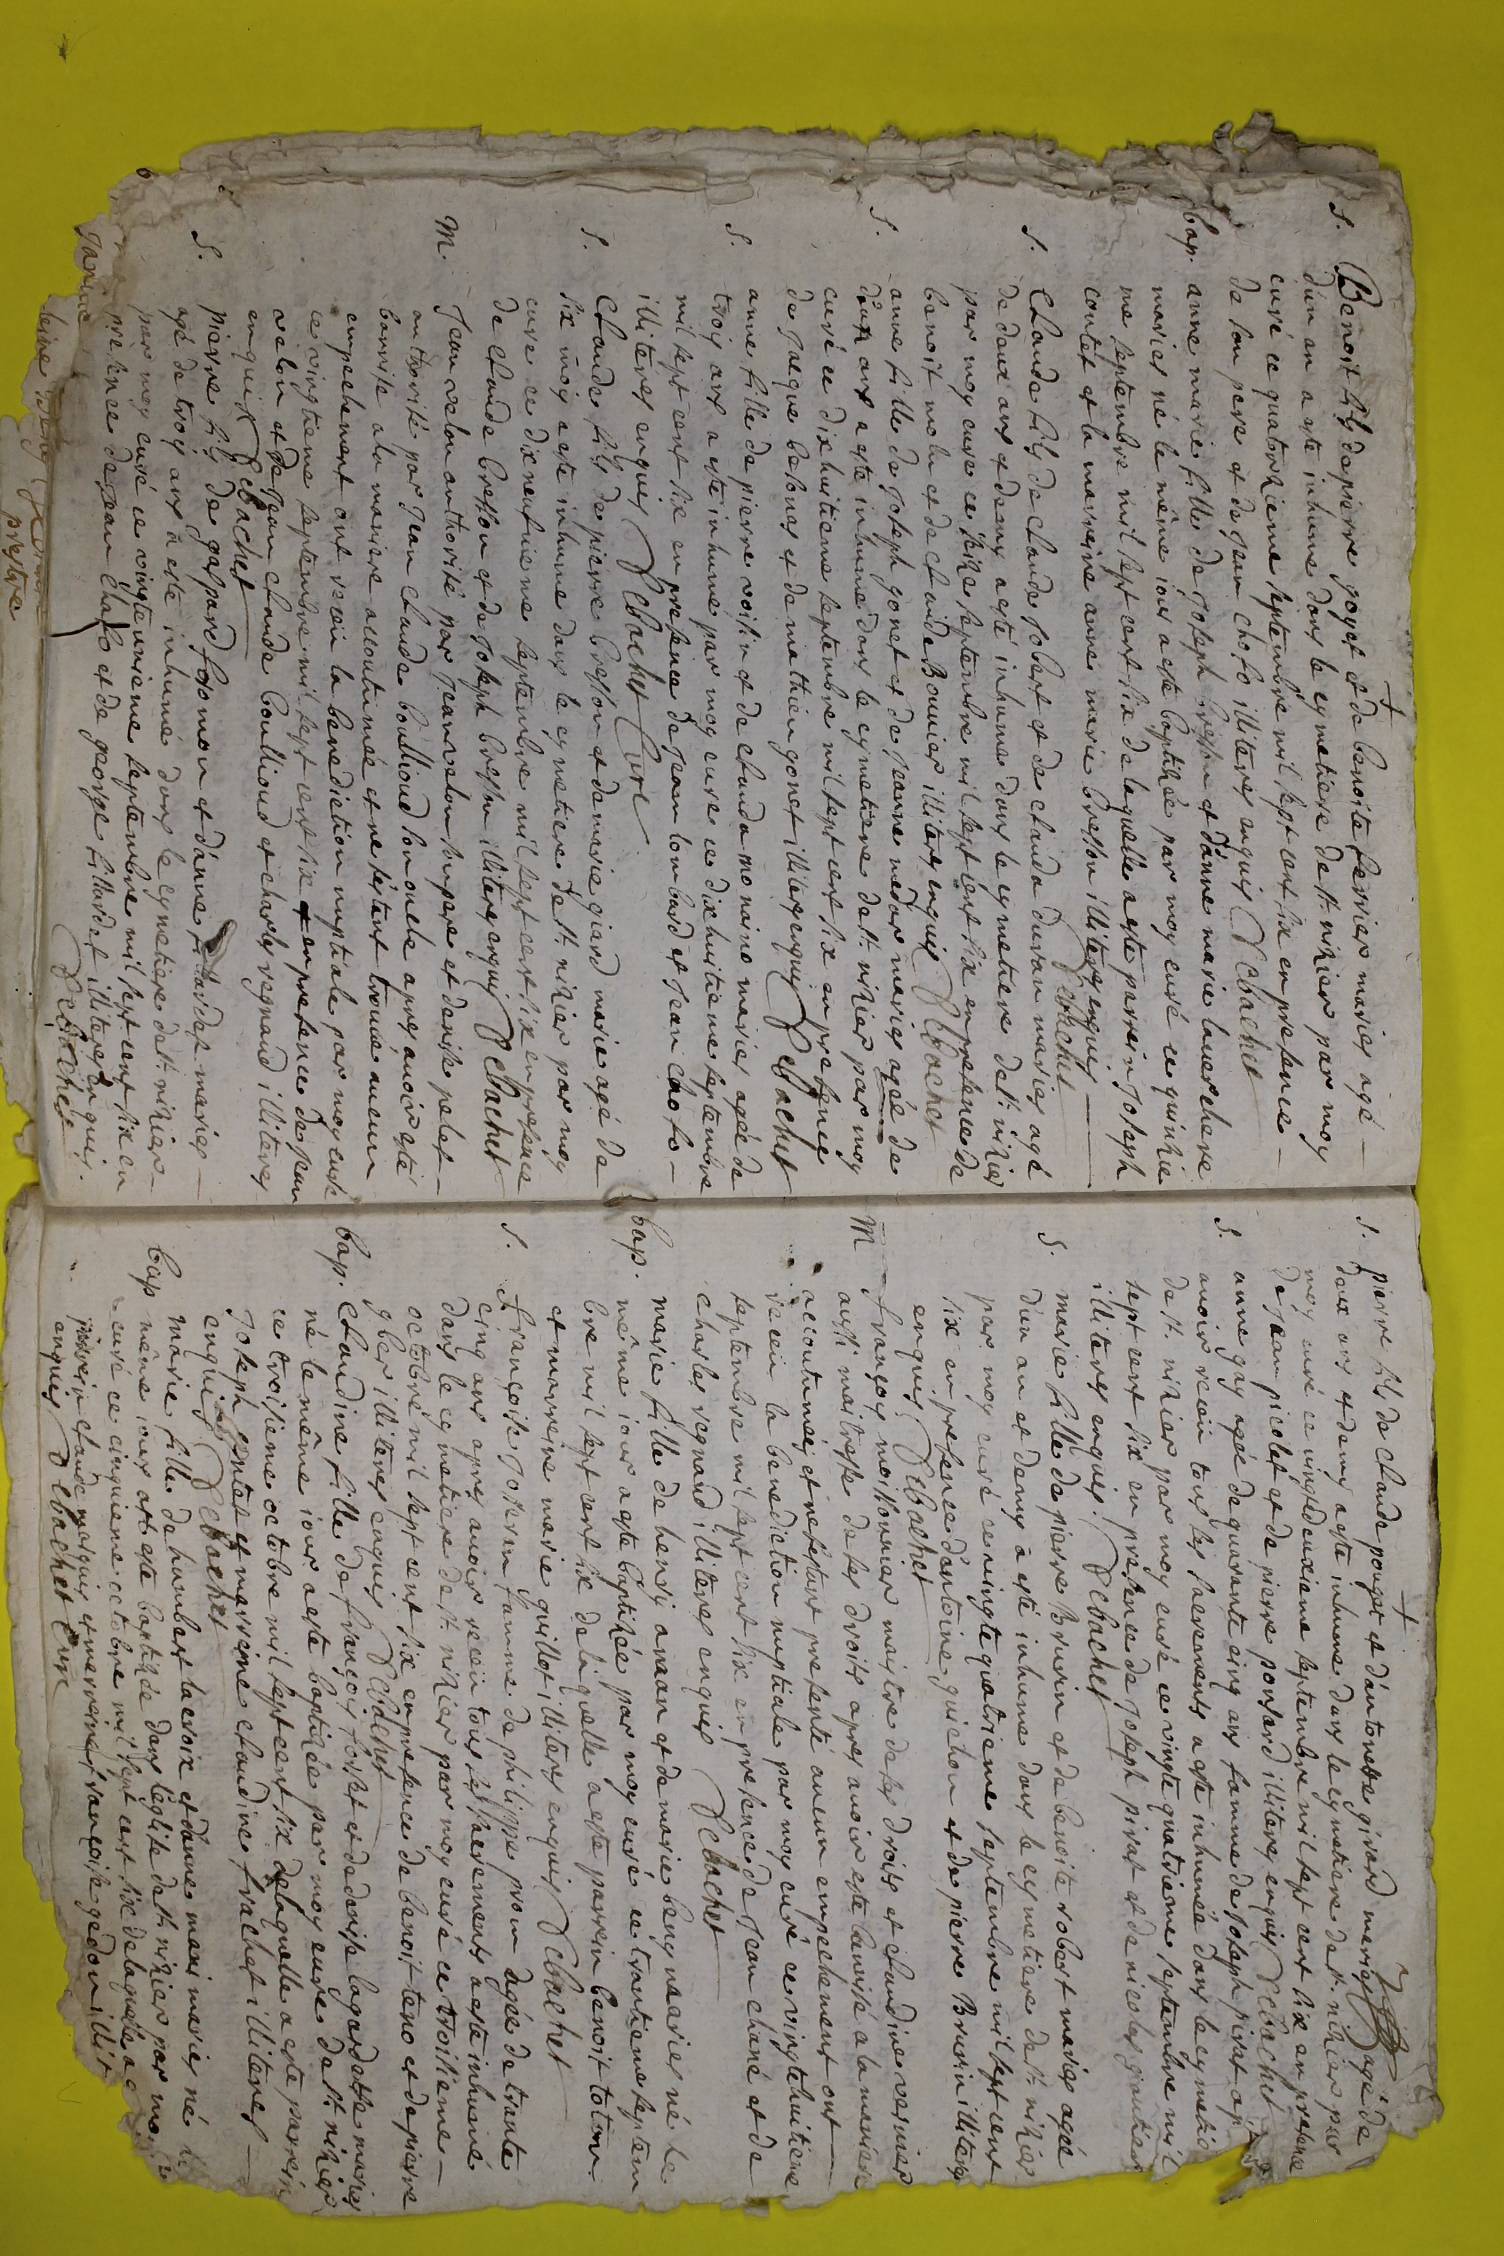 S. Benoist fils de pierre goyet et de benoite perrier mariés agé
d'un an a esté inhumé dans le cymetiere de st. nizier par moy
curé ce quatorzieme septembre mil sept cent six en presence
de son pere et de jean illiteres enquis Debachet
bap. anne marie fille de joseph bresson et d'anne marie
mariés né le même iour a esté baptisée par moy curé ce quinzie
me septembre mil sept cent six de laquelle a esté parrein joseph
contet et la marreine anne marie bresson illiteres enquis
Debachet
S. Claude fils de claude robert et de clauda duran mariés agé
de deux ans et demy a esté inhumé dans le cymetiere de st. nizier
par moy curé ce seize septembre mil sept cent six en presence de
benoist et de claude Bouvier illiteres enquis Debachet
S. anne fille de joseph gonet et de jeanne mariés agée de
deux ans a esté inhumée dans le cymetiere de st. nizier par moy
curé ce dixhuitieme septembre mil sept cent six en presence
de jacque et de mathieu gonet illiteres enquis Debachet
S. anne fille de pierre voisin et de clauda mariés agée de
trois ans a esté inhumée par moy curé ce dixhuitieme septembre
mil sept cent six en presence de jean lombard et jean
illiteres enquis Debachet Curé
S. Claude fils de pierre bresson et de marie giard mariés agé de
six mois a esté inhumé dans le cymetiere de st. nizier par moy
curé ce dix neufvieme septembre mil sept cent six en presence
de claude bresson et de joseph bresson illiteres enquis Debachet
M. Jean velon authorisé par jean velon son pere et denise pelet
authorisée par jean claude boullioud son oncle apres auoir esté
a la maniere accoutumée et ne s'etant trouué aucun
empechement ont receu la benediction nuptiale par moy curé
ce vingtieme septembre mil sept cent six en presence de jean
velon et de jean claude boullioud et charles regnaud illiteres
enquis Debachet
S. pierre fils de gaspard et d'anne mariés
agé de trois ans a esté inhumé dans le cymetiere de st. nizier
par moy curé ce vingtunieme septembre mil sept cent six en
presence de jean et de george illiteres enquis.
Debachet
prestre
S. pierre fils de claude pouget et d'antonette girard mariés agé de
deux ans et demy a esté inhumé dans le cymetiere de st. nizier par
moy curé ce vingtdeuxieme septembre mil sept cent six en presence
de jean picolet et de pierre ponsard illiteres enquis Debachet
S. anne gay agée de quarante cinq ans famme de joseph pirat
auoir receu tous ses sacrements a esté inhumée dans le cymetie
de st. nizier par moy curé ce vingte quatrieme septembre mil
sept cent six en presence de joseph pirat et de nicolas gautier
illiteres enquis. Debachet
S. marie fille de pierre Brurin et de benoite robert mariés agée
d'un an et demy a esté inhumé dans le cymetiere de st. nizier
par moy curé ce vingte quatrieme septembre mil sept cent
six en presence d'antoine guichon et de pierre Brurin illiteres
enquis Debachet
M françois moissonnier maistre de ses droits et claudine
aussi maitresse de ses droits apres auoir esté a la maniere
accoutumée et n'estant presenté aucun empechement ont
receu la benediction nuptiale par moy curé ce vingtehuitieme
septembre mil sept cent six en presence de jean chané et de
charles regnaud illiteres enquis Debachet
bap. marie fille de henry auran et de marie mariés né le
même iour a esté baptisée par moy curé ce trantieme septem
bre mil sept cent six de laquelle a esté parrein benoit
et marreine marie guillot illiteres enquis Debachet
S. Françoise famme de philippe prom agée de trante
cinq ans apres auoir receu tous ses sacrements a esté inhumé
dans le cymetiere de st. nizier par moy curé ce troisieme
octobre mil sept cent six en presence de benoit et de pierre
illiteres enquis Debachet
bap. Claudine fille de françois et de denise mariés
né le même iour a esté baptisée par moy curé de st. nizier
ce troisieme octobre mil sept cent six de laquelle a esté parrein
joseph contet et marreine claudine frachet illiteres
enquis Debachet
bap marie fille de humbert lacroix et d'anne mariés né le
même iour a esté baptisée dans l'eglise de st. nizier par moy
curé ce cinquieme octobre mil sept cent six de laquelle a
parrein claude et marreine françoise gedon illit
enquis Debachet curé